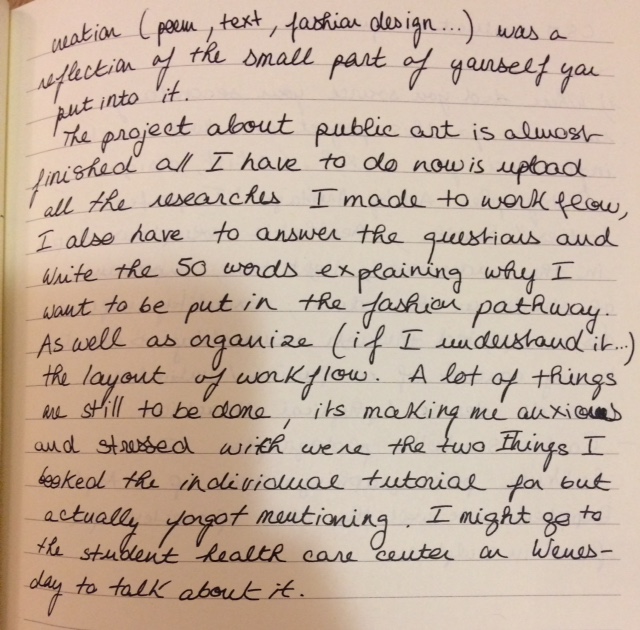 creation (poem, text, fashion design...) was a
reflection of the small part of yourself you
put into it.
The project about public art is almost
finished all I have to do now is upload
all the researches I made to work flow,
I also have to answer the questions and
write the 50 words explaining why I
want to be put in the fashion pathway.
As well as organize (if I understand it...)
the layout of workflow. A lot of things
are still to be done, its making me anxious
and stressed with were the two Things I
booked the individual tutorial for but
actually forgot mentioning. I might go to
the student health care center on Wenes-
day to talk about it.